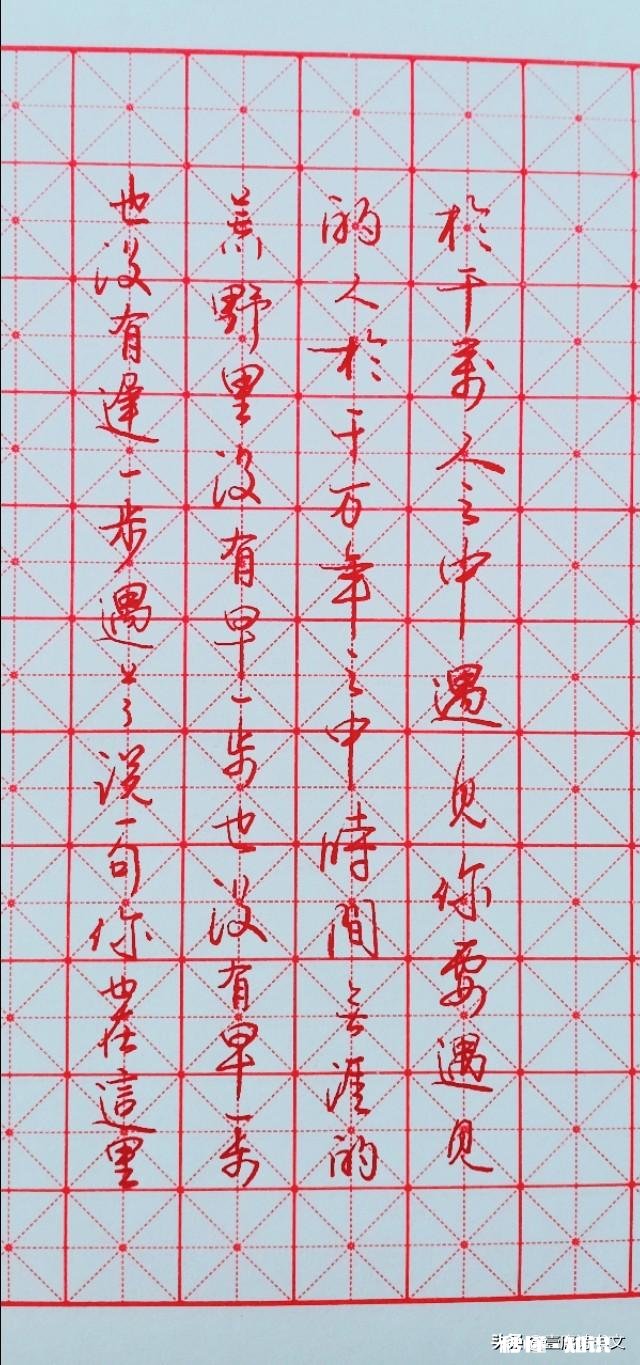 於千萬人之中遇見你要遇見
的人於千万年之中時間無涯的
荒野里没有早一步也没有早一步
也没有遲一步遇上了說一句你也在這里